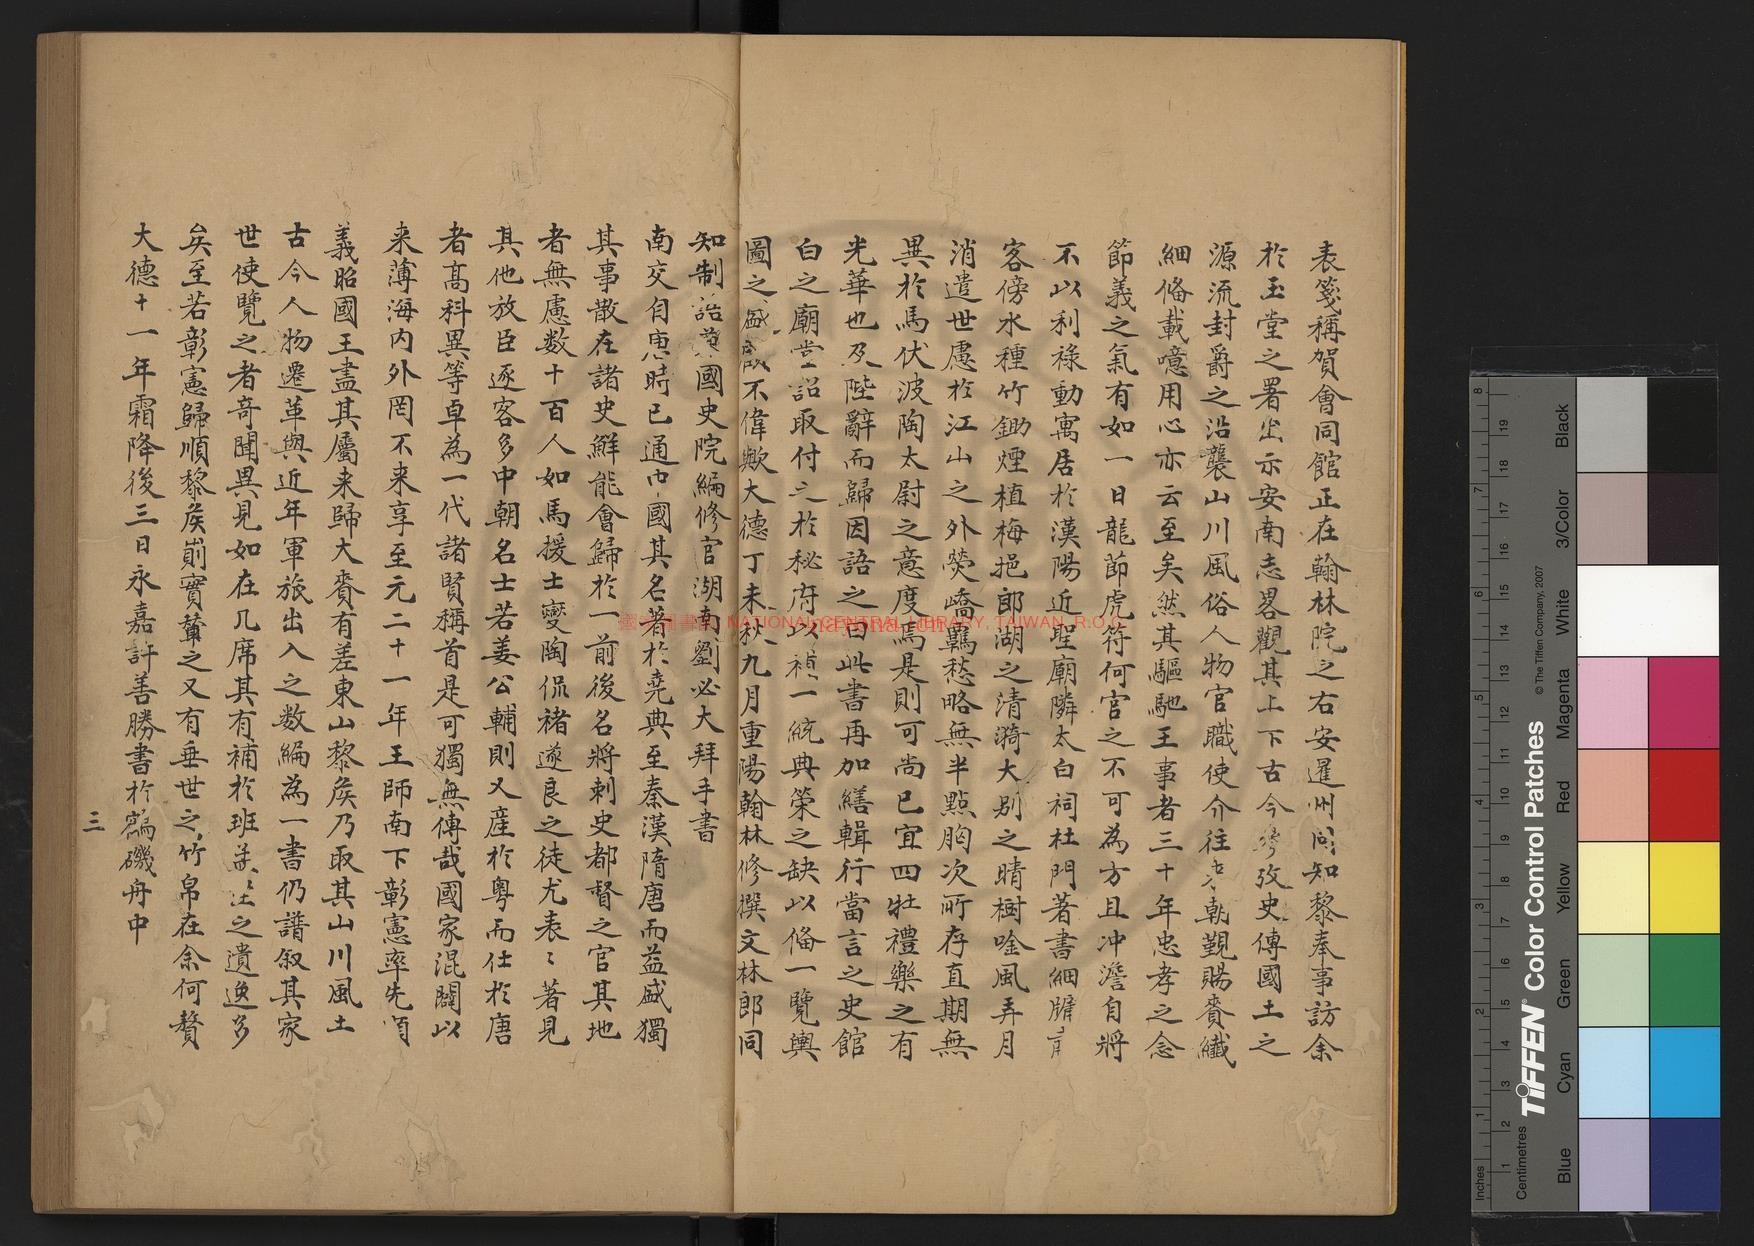 表箋稱賀會同館正在翰林院之右安暹州同知黎奉事訪余
於玉堂之署出示安南志畧觀其上下古今攷史傳國土之
源流封爵之沿襲山川風俗人物官職使介往朝覲賜賚纖
細俻載噫用心亦云至矣然其驅馳王事者三十年忠孝之念
節義之氣有如一日龍節虎符何官之不可為方且冲澹自將
不以利祿動寓居於漢陽近聖廟隣太白祠杜門著書細
客傍水種竹鋤煙植梅挹郎湖之清漪大別之晴樹唫風弄月
消遣世慮於江山之外熒嶠羈愁略無半點胸次所存直期無
異於馬伏波陶太尉之意度焉是則可尚已宜四牡禮樂之有
光華也及陛辭而歸因語之曰此書再加繕輯行當言之史館
白之廟堂詔取付之於秘府以補一統典策之缺以俻一覽輿
圖之盛不偉歟大德丁未秋九月重陽翰林修撰文林郎同
知制誥兼國史院編修官湖南劉必大拜手書
南交自唐時已通中國其名著於堯典至秦漢隋唐而益盛獨
其事散在諸史鮮能會歸於一前後名將刺史都督之官其地
者無慮数十百人如馬援士燮陶侃褚遂良之徒尤表〻著見
其他放臣逐客多中朝名士若姜公輔則又産於粵而仕於唐
者髙科異等卓為一代諸賢稱首是可獨無傳哉國家混闢以
来薄海內外罔不来享至元二十一年王師南下彰憲率先
義昭國王盡其屬来歸大賚有差東山黎矦乃取其山川風土
古今人物遷革與近年軍旅出入之数編為一書仍譜叙其家
世使覽之者竒聞異見如在几席其有補於班之遺逸多
矣至若彰憲歸順黎矦前實贊之又有垂世之竹帛在余何贅
大德十一年霜降後三日永嘉許善勝書於磯舟中
三
國家圖書館 NATIONAL CENTRAL LIBRARY, TAIWAN, R.O.C.
Inches
Centimetres
TIFFEN® Color Control Patches
© The Tiffen Company, 2007
Blue
Cyan
Green
Yellow
Red
Magenta
White
3/Color
Black